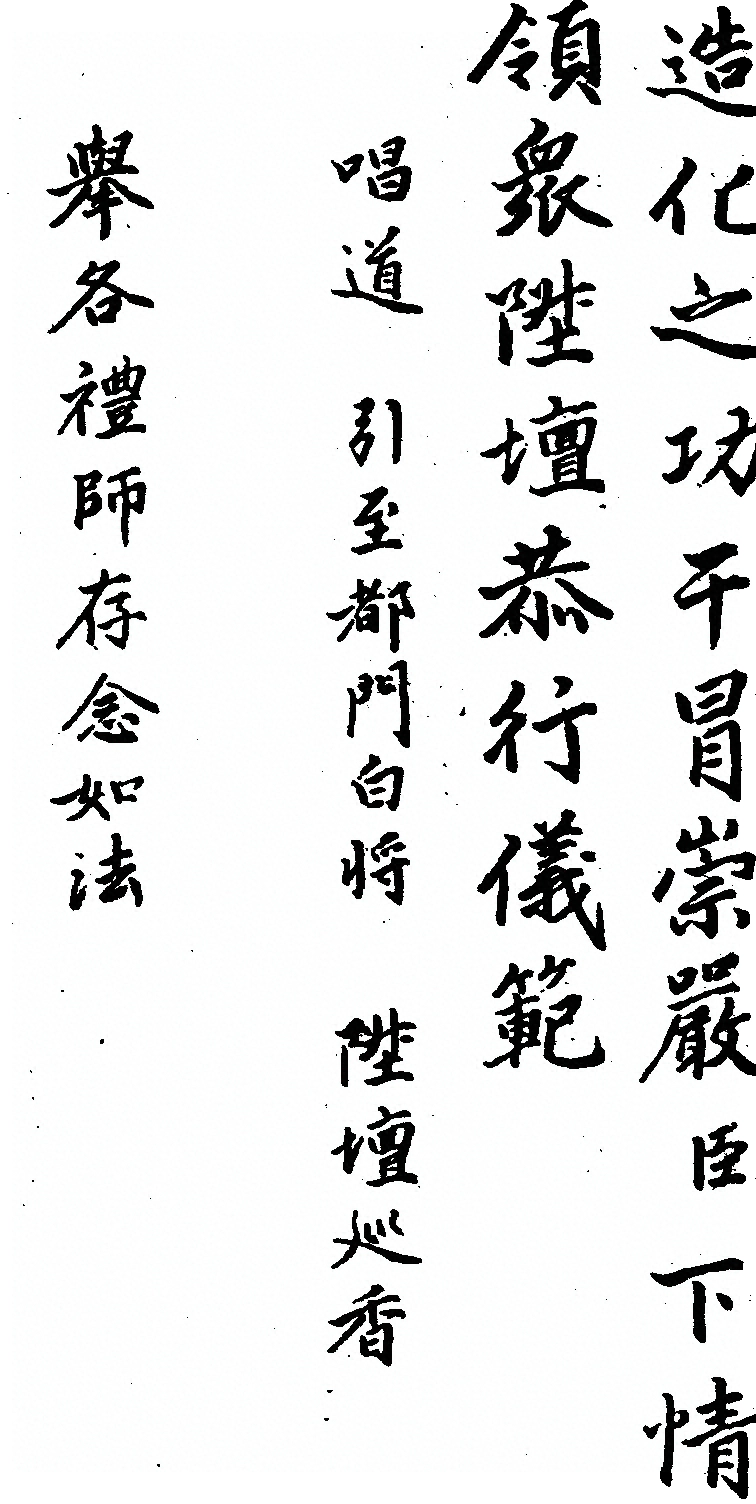 造化之功干冒崇嚴臣下情
領衆陞壇恭行儀範
唱道 引至都門白將 陞壇巡香
舉各禮師存念如法